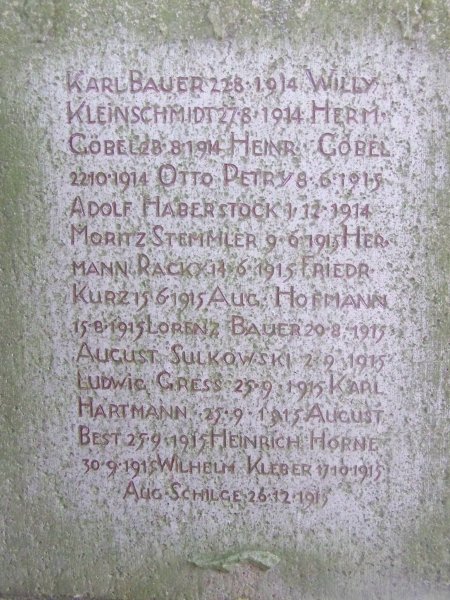 KARL BAUER 22·8·1914 WILLY
KLEINSCHMIDT 27·8·1914 HERM·
GÖBEL 28·8·1914 HEINR· GÖBEL
22·10·1914 OTTO PETRY 8·6·1915
ADOLF HABERSTOCK 1·12·1914
MORITZ STEMMLER 9·6·1915 HER-
MANN RACKY 14·6·1915 FRIEDR·
KURZ 15·6·1915 AUG· HOFMANN
15·8·1915 LORENZ BAUER 20·8·1915
AUGUST SULKOWSKI 2·9·1915
LUDWIG GRESS 25·9·1915 KARL
HARTMANN 25·9·1915 AUGUST
BEST 25·9·1915 HEINRICH HORNE
30·9·1915 WILHELM KLEBER 17·10·1915
AUG·SCHILGE·26·12·1915